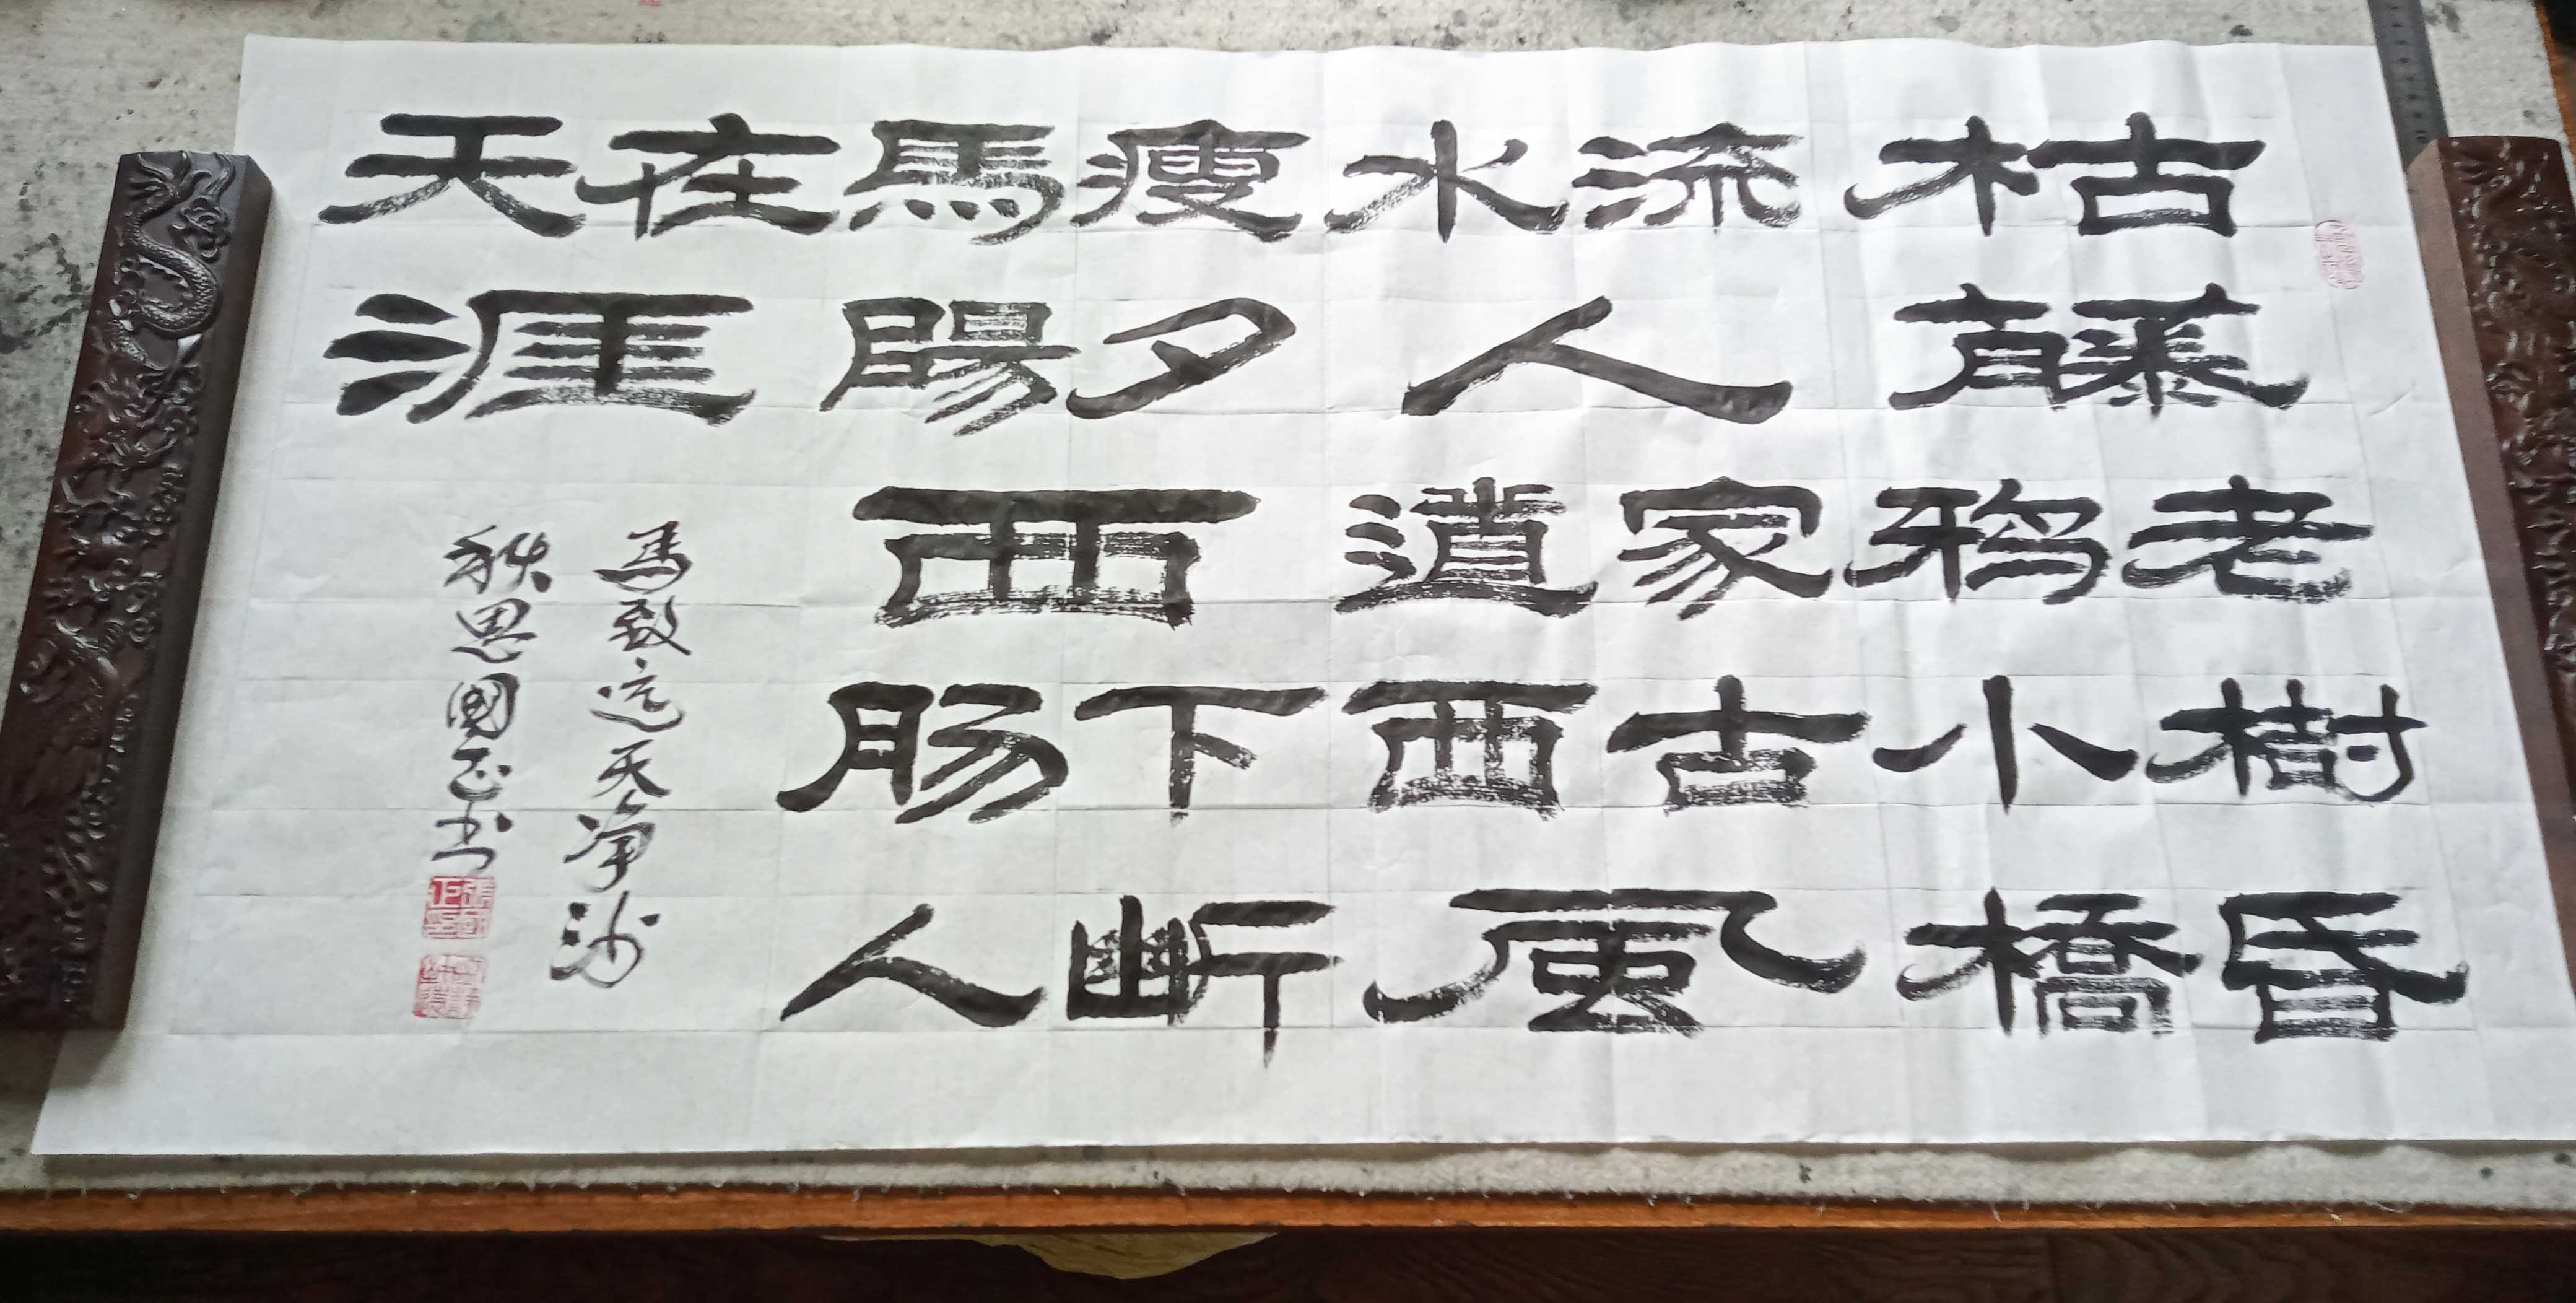 枯藤老樹昏
鸦小橋
流水人家古
道西風
瘦馬夕陽西下斷
肠人
在天涯
馬致遠天净沙
秋思國正书